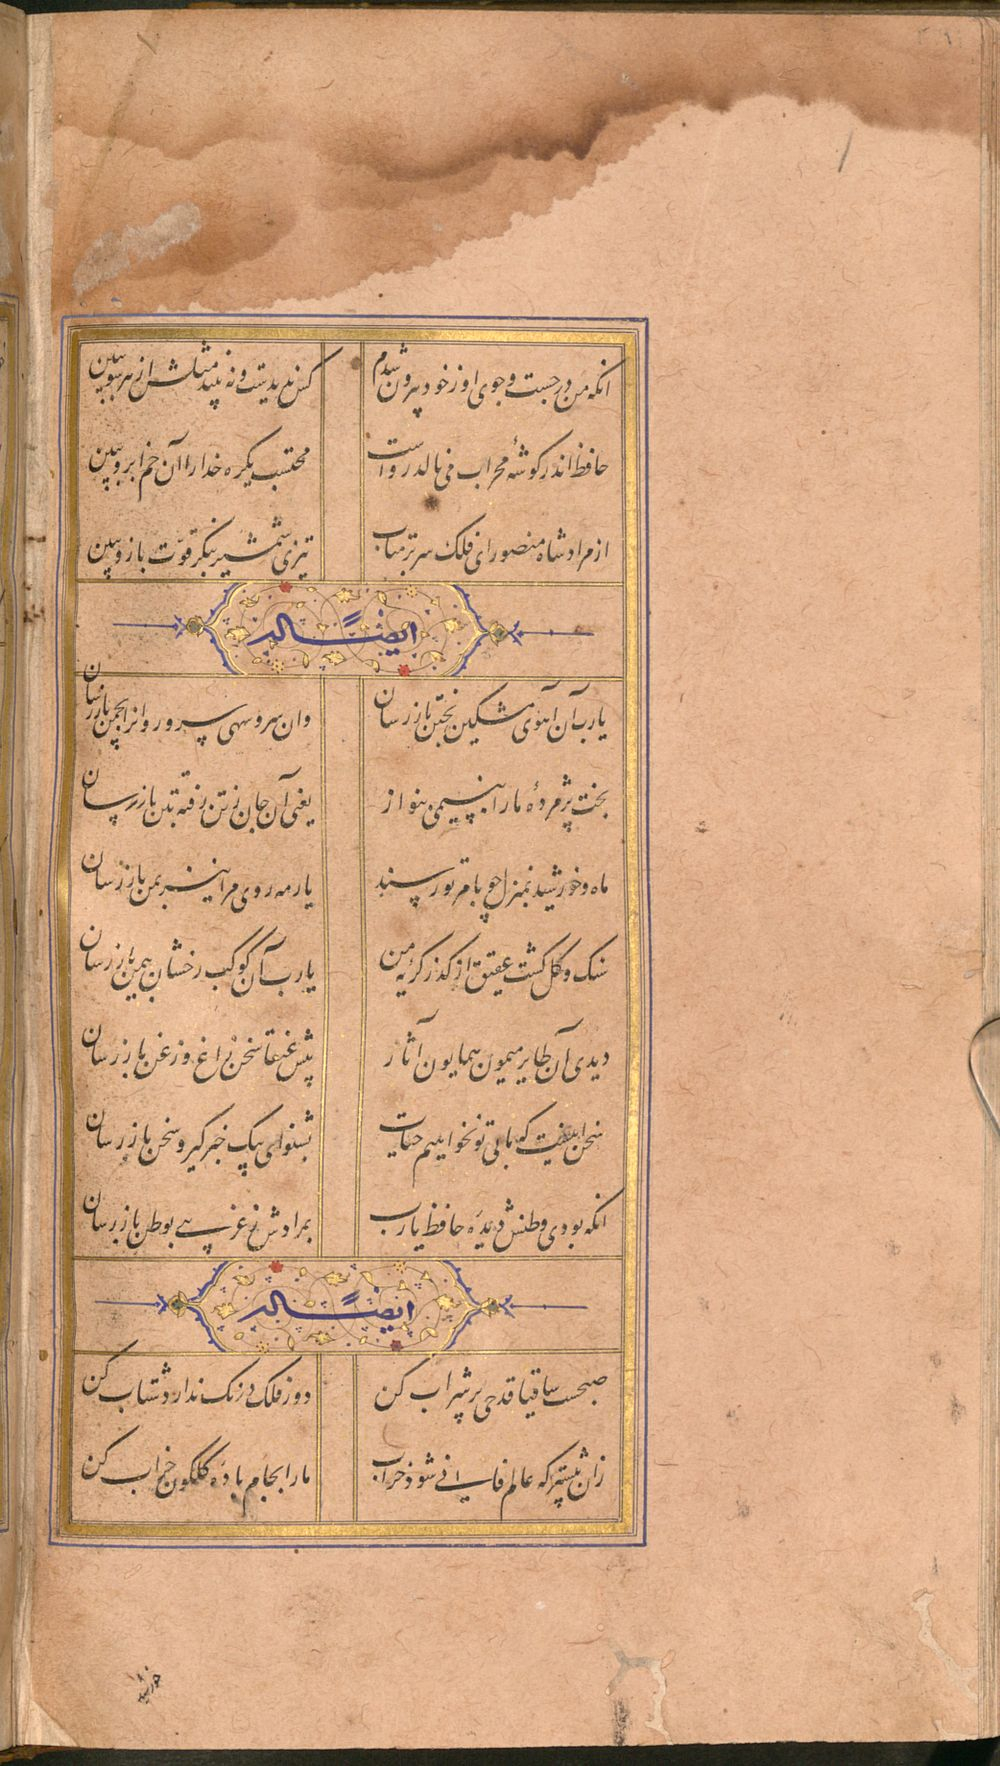 انکه من در جست و جوی او ز خود بیرون شدم
کس ندیدست و نه بیند مثلش از هر سو ببین
حافظ اندر کوشهٔ محراب می نالد رواست
محتسب یکره خدارا آن خم ابرو ببین
از مراد شاه منصور ای فلک سر بر متاب
تیزی شمشیر بنکر قوّت بازو ببین
ایضاً له
یارب آن آهوی مشکین بختن باز رسان
وان سهی سرو روانرا بچمن باز رسان
بخت پژمردهٔ مارا بنسیمی بنواز
یعنی آن جان ز تن رفته بتن باز رسان
ماه و خورشید بمنزل چو بامر تو رسند
یار مه روی مرا نیز بمن باز رسان
سنک و کل کشت عقیق از کذر کریهٔ من
یارب آن کوکب رخشان بیمن باز رسان
دیدی آن طایر میمون همایون آثار
پیش عنقا سخن زاغ و زغن باز رسان
سخن اینست که ما بی تو نخواهیم حیات
بشنو ای پیک خبر کیر و سخن باز رسان
انکه بودی وطنش دیدهٔ حافظ یارب
بمرادش ز غریبی بوطن باز رسان
ایضاً له
صبحست ساقیا قدحی پر شراب کن
دور فلک درنک ندارد شتاب کن
زان پیشتر که عالم فانی شود خراب
مارا بجام بادهٔ کلکون خراب کن